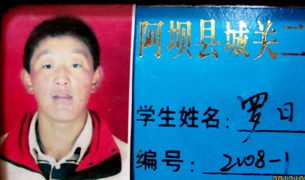 阿坝县城关二
学生姓名：罗日
编号：2008-1